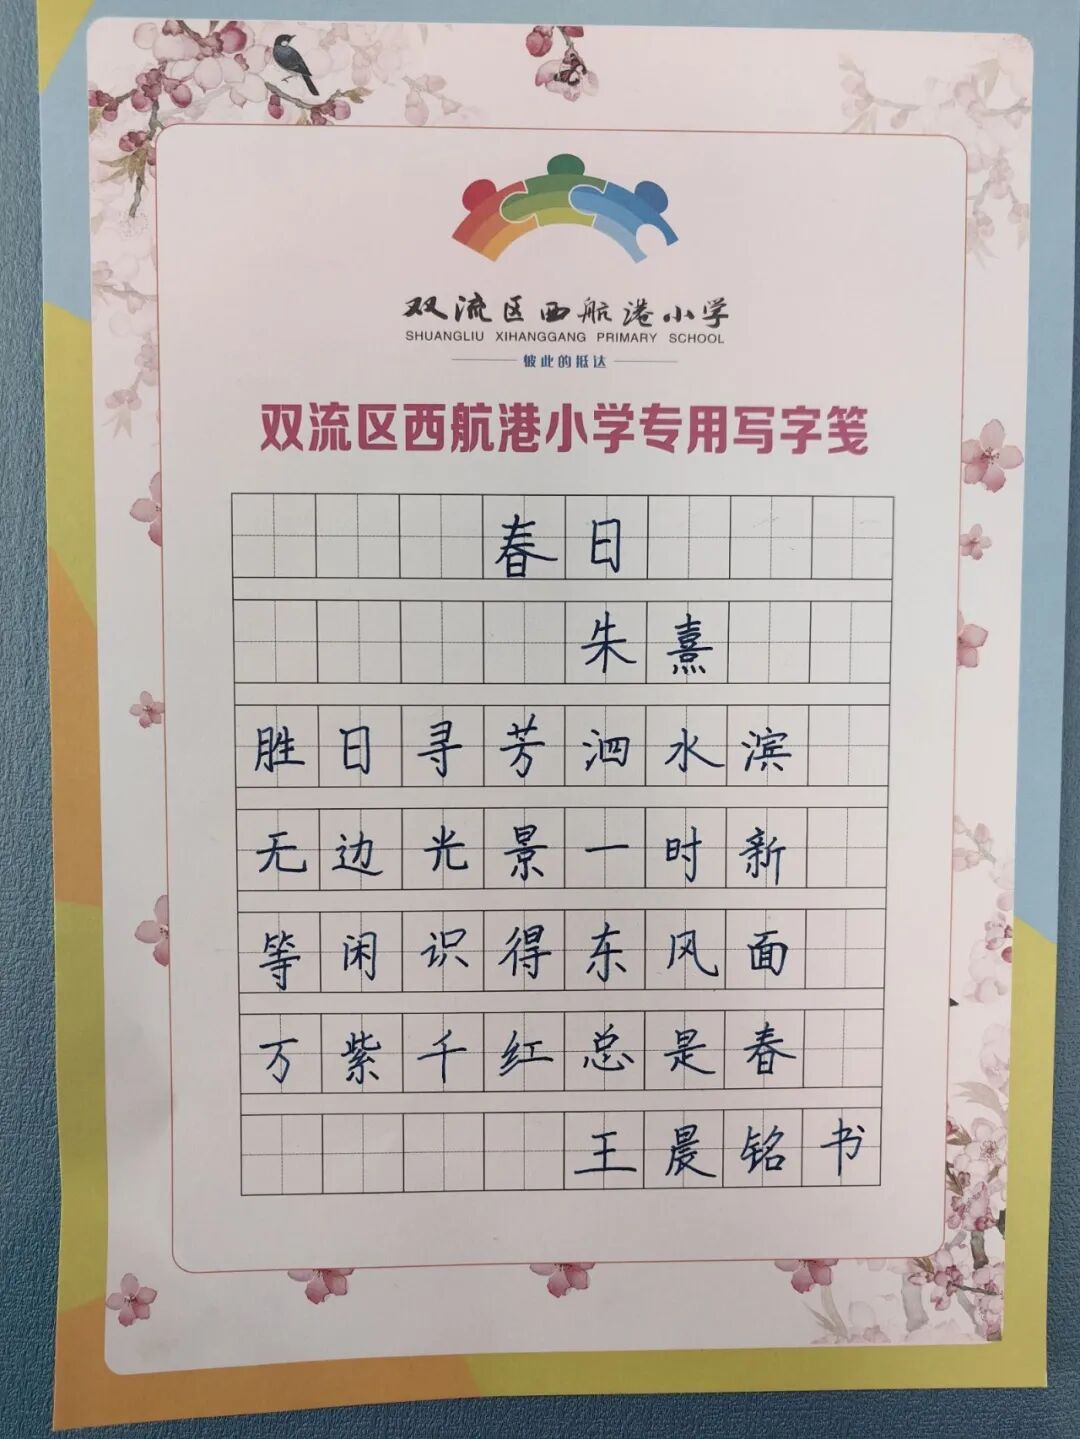 双流区西航港小学
SHUANGLIU XIHANGGANG PRIMARY SCHOOL
彼此的抵达
双流区西航港小学专用写字笺
春日
朱熹
胜日寻芳泗水滨
无边光景一时新
等闲识得东风面
万紫千红总是春
王晨铭书